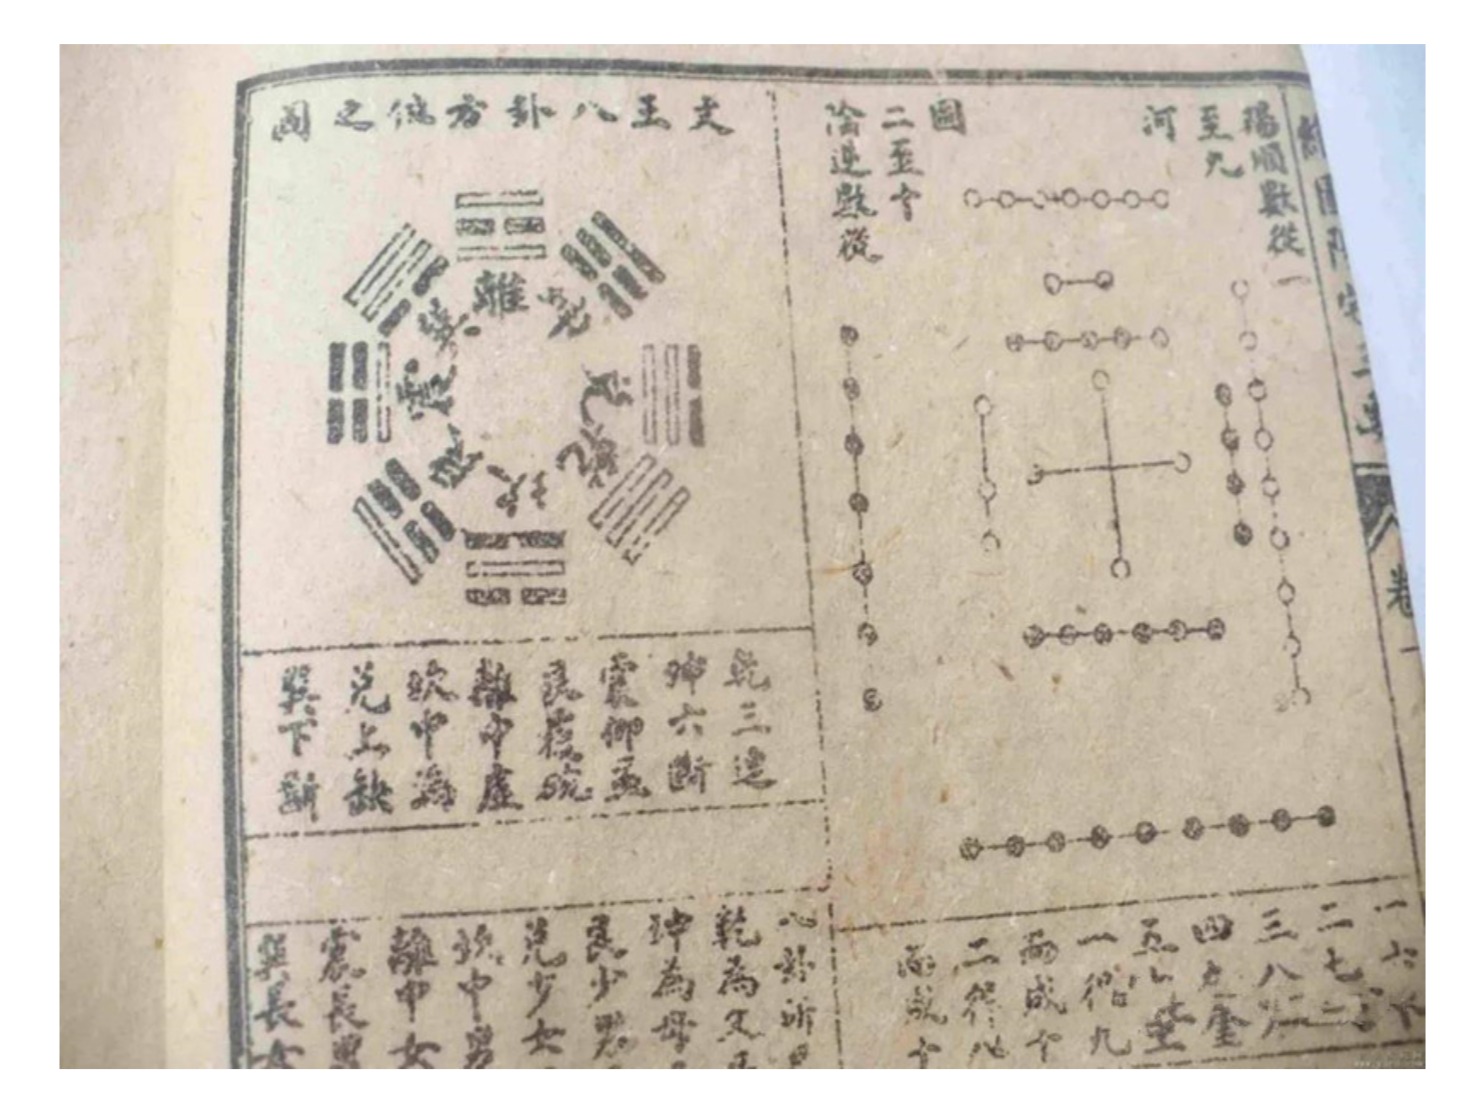 圖陽宅三要
卷一
陽順數從一
至九
河
圖
二至十
陰逆數從
一六
二七
三八
四九
五
一得九
而成十
二得八
而成十
文王八卦方位之圖
離
坤
兌
乾
坎
艮
震
巽
乾三連
坤六斷
震仰盂
艮覆碗
離中虛
坎中滿
兌上缺
巽下斷
八卦所
乾為父
坤為母
艮少男
兌少女
坎中男
離中女
震長男
巽長女